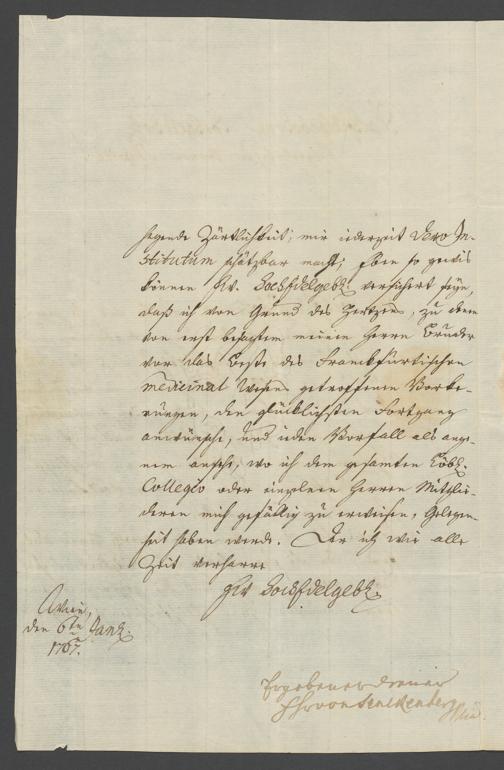 hegende Zärtlichkeit, mir iederzeit Dero In-
stitutum schätzbar macht; Eben so gewis
können Ew. HochEdelgeb. versichert seyn,
daß ich von Grund des Hertzens, zu denen
von erst besagtem meinem Herrn Bruder
vor das Beste des Franckfurtischen
medicinal Wesens getroffenen Vorke-
rungen, den glücklichsten Fortgang
anwünsche, und ieden Vorfall als ange-
nem ansehe, wo ich dem gesamten Löbl.
Collegio oder einzelnen Herren Mitglie-
deren mich gefällig zu erweisen, Gelegen-
heit haben werde. Der ich wie alle
Zeit verharre
Ew HochEdelgeb.
Wien,
den 6ten Janr.
1767.
Ergebener Diener
von Senckenberg